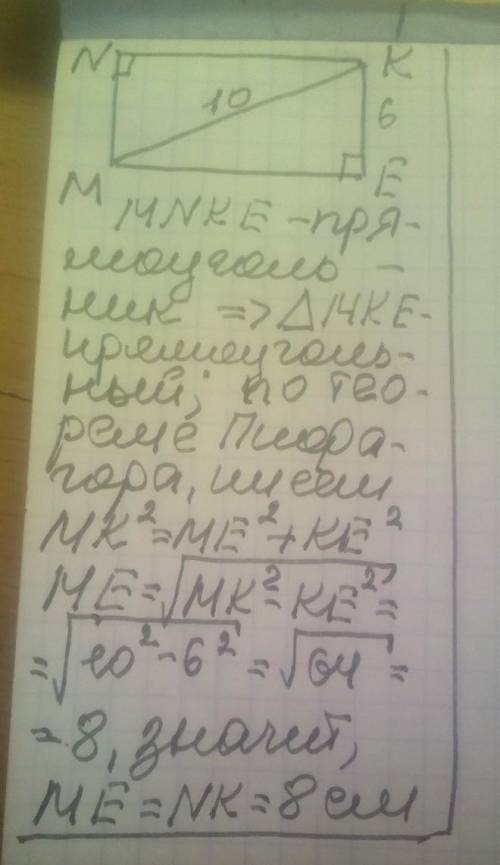 N K
10
6
M E
MNKE - пря-
моуголь -
ник => △MKE -
прямоуголь-
ный; по тео-
реме Пифа-
гора, имеем
MK² = ME² + KE²
ME = √MK² - KE² =
= √10² - 6² = √64 =
= 8, значит,
ME = NK = 8 см